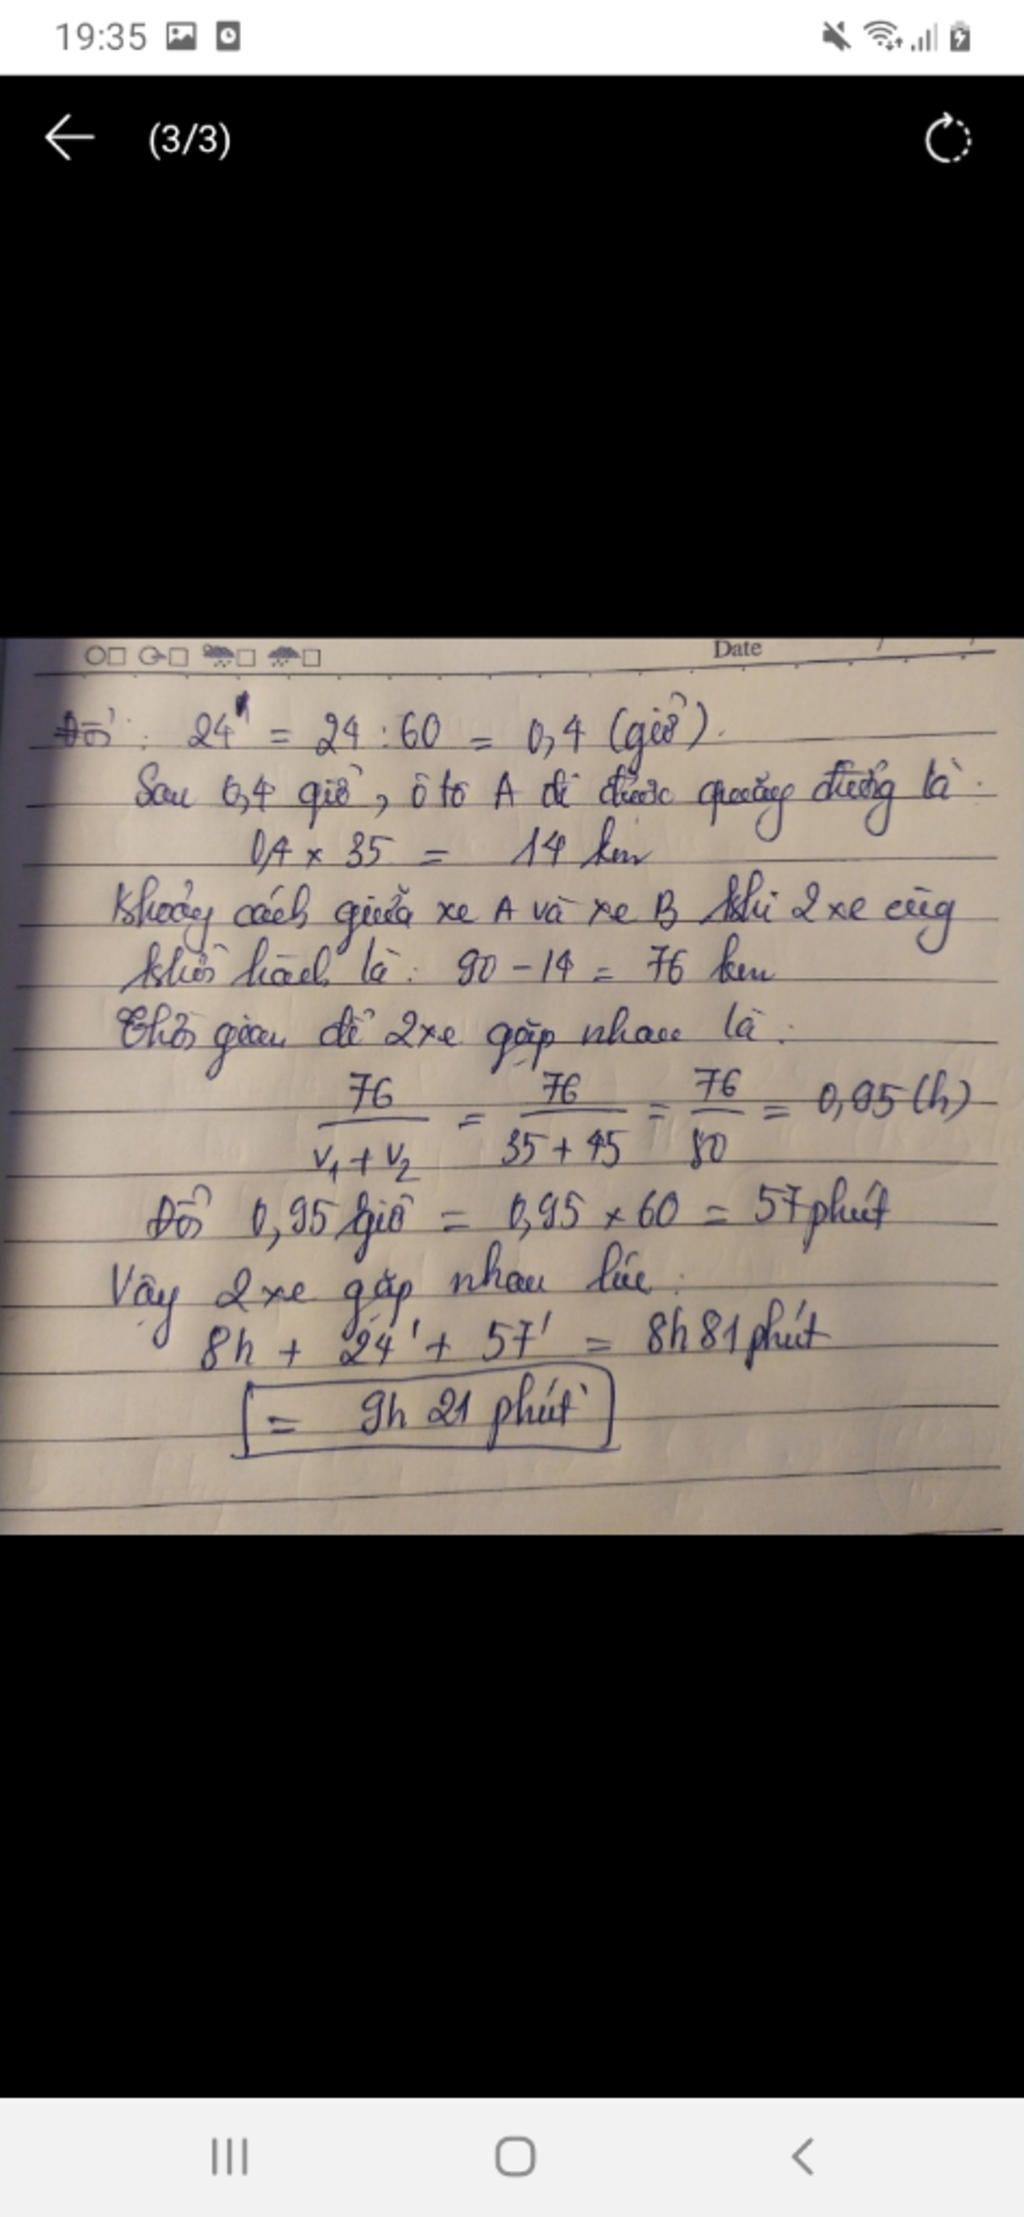 19:35
(3/3)
Date
Đổi: 24' = 24 : 60 = 0,4 (giờ).
Sau 0,4 giờ, ô tô A đi được quãng đường là:
0,4 × 35 = 14 km
Khoảng cách giữa xe A và xe B khi 2 xe cùng
khởi hành là: 90 - 14 = 76 km
Thời gian để 2 xe gặp nhau là:
76 / V₁ + V₂ = 76 / 35 + 45 = 76 / 80 = 0,95 (h)
Đổi 0,95 giờ = 0,95 × 60 = 57 phút
Vậy 2 xe gặp nhau lúc:
8h + 24' + 57' = 8h 81 phút
= 9h 21 phút